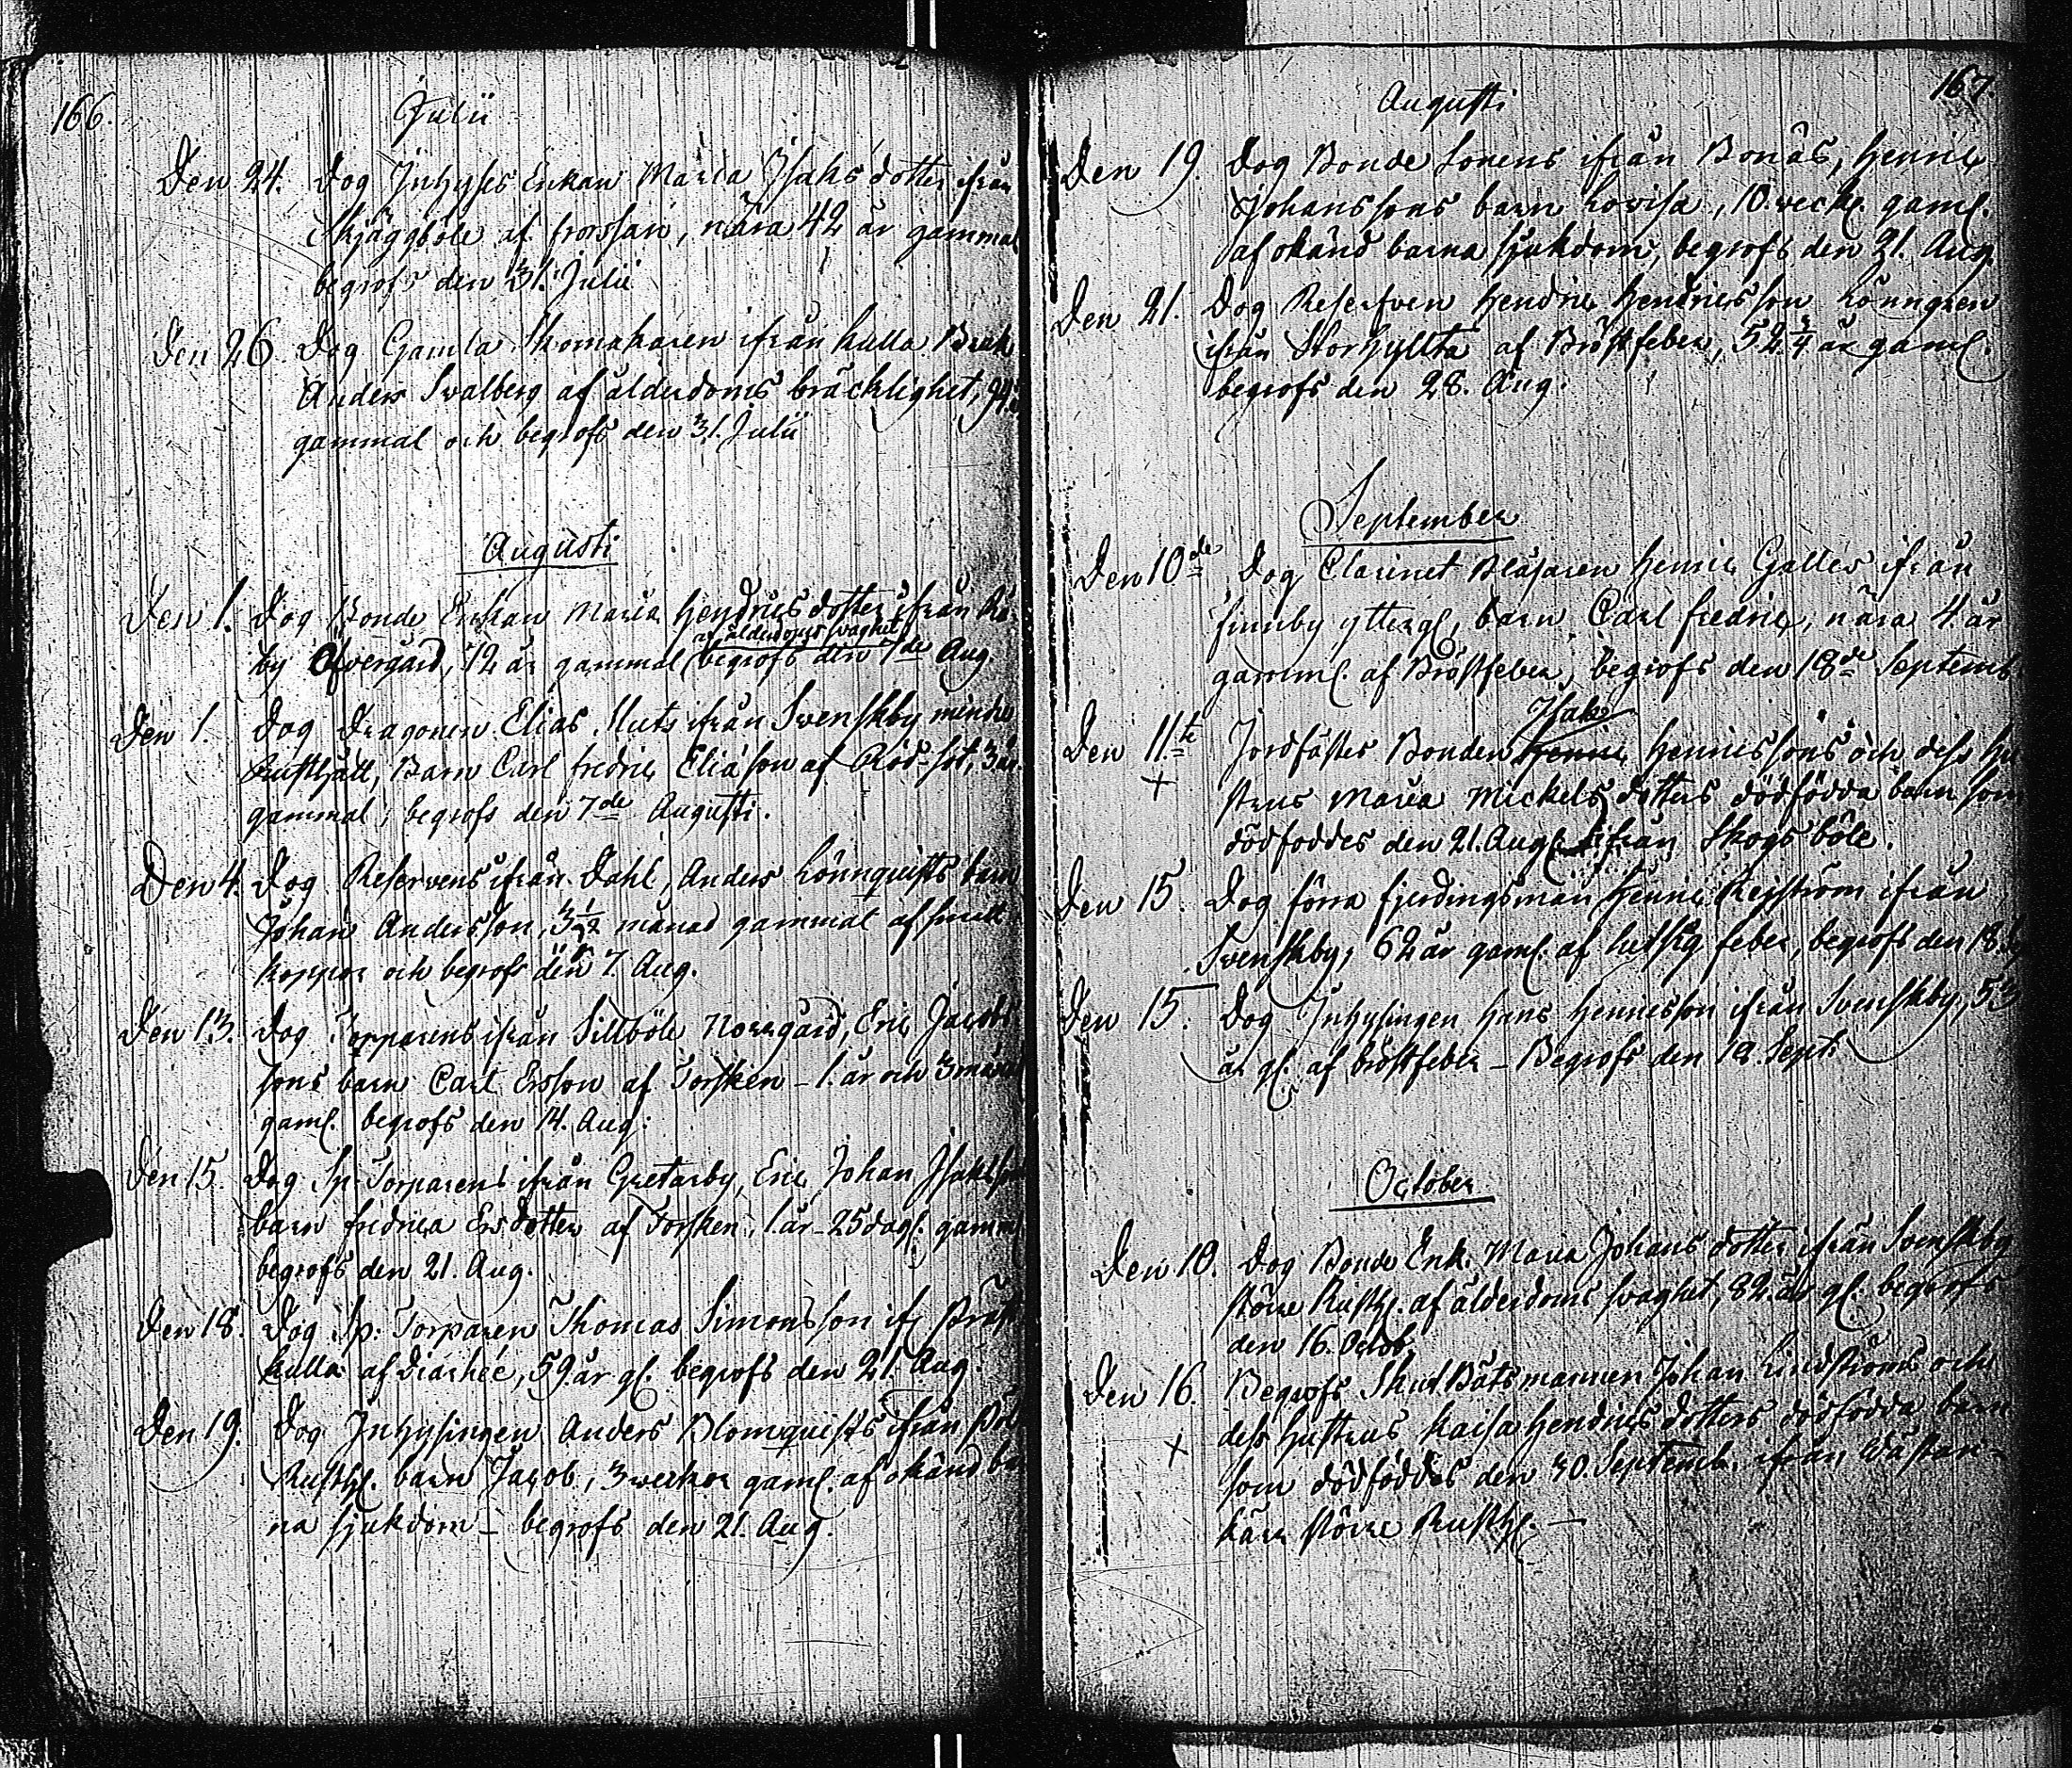 166.
Julii
Den 24. Dog Inhyses Enkan Maria Isaks dotter ifrån
Skjäggböle af frossan, nära 42 år gammal
begrofs den 31. Julii
Den 26. Dog Gamla Skomakaren ifrån Kulla
Anders Swalberg af ålderdoms bräcklighet,
gammal och begrofs den 31. Julii
Augusti
Den 1. Dog Bonde Enkan Maria Hendrics dotter ifrån
af ålderdoms svaghet
by Öfvergård, 72 år gammal begrofs den 7de Aug
Den 1. Dog Dragonen Elias Muts ifrån Swenskby mindre
Rusthåll, Barn Carl Fredric Eliason af Röd-sot, 3 år
gammal, begrofs den 7de Augusti.
Den 4. Dog Reservens ifrån Dahl, Anders Lönnquists barn
Johan Andersson, 3 1/2 månad gammal af små
koppor och begrofs den 7. Aug.
Den 13. Dog Torparens ifrån Sillböle Norrgård, Eric Jacobs
sons barn Carl Ersson af Torsken - 1. år och 3 månad
gaml. begrofs den 14. Aug:
Den 15. Dog Sp. Torparens ifrån Gretarby, Eric Johan Isaksson
barn Fredrica Ersdotter af Torsken, 1 år - 25 dag. gamml
begrofs den 21. Aug.
Den 18. Dog Sp: Torparen Thomas Simonsson ifr. Präst
kulla af diarhée, 59. år gl. begrofs den 21. Aug.
Den 19. Dog Inhysingen Anders Blomquists ifrån
Rusth. barn Jacob, 3 weckor gaml. af okänd bar
na sjukdom - begrofs den 21. Aug.
167.
Augusti
Den 19. Dog Bonde Sonens ifrån Bonäs, Henric
Johanssons barn Lovisa, 10. weck. gaml.
af okänd barna sjukdom, begrofs den 21. Aug.
Den 21. Dog Reserfven Hendric Hendricsson Lönngren
ifrån Storhyllta af Bröstfeber, 52 3/4 år gaml.
begrofs den 28. Aug.
September
Den 10de Dog Clarinet Blåsaren Henric Galles ifrån
Finnby ytterg., barn Carl Fredric, nära 4 år
gamml. af Bröstfeber, begrofs den 18de Septemb.
Isak
Den 11te Jordfästes Bonden Henric Henricssons och dess hu
+
strus Maria Mickels dotters dödfödda barn som
dödföddes den 21. Aug. ifrån Skogsböle.
Den 15. Dog förra fjerdingsman Henric Rejström ifrån
Svenskby, 62 år gaml. af hetsig feber, begrofs den 18.
Den 15. Dog Inhysingen Hans Henricsson ifrån Svenskby, 53
år gl. af bröstfeber - Begrofs den 18. Sept.
October
Den 10. Dog Bonde Enk. Maria Johans dotter ifrån Svenskby
större Rusth. af ålderdoms svaghet, 82. år gl. begrofs
den 16. Octob.
Den 16. Begrofs Skut Båtsmannen Johan Lindströms och
+
dess hustrus Kaisa Hendrics dotters dödfödda barn
som dödföddes den 30. Septemb. ifrån Wästan-
kärr större Rusth. -